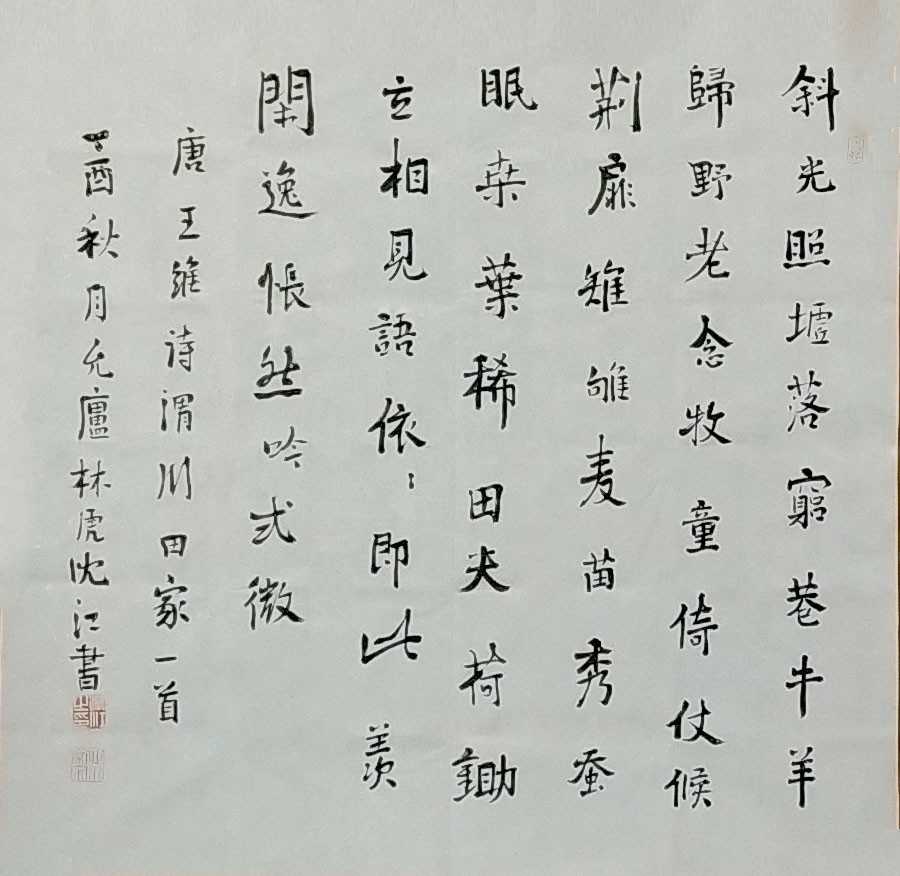 斜光照墟落窮巷牛羊
歸野老念牧童倚仗候
荆扉雉雊麦苗秀蚕
眠桒葉稀田夫荷鋤
立相見語依〻即此羨
閑逸悵然吟式微
唐王維诗渭川田家一首
丁酉秋月廬林虎沈江書